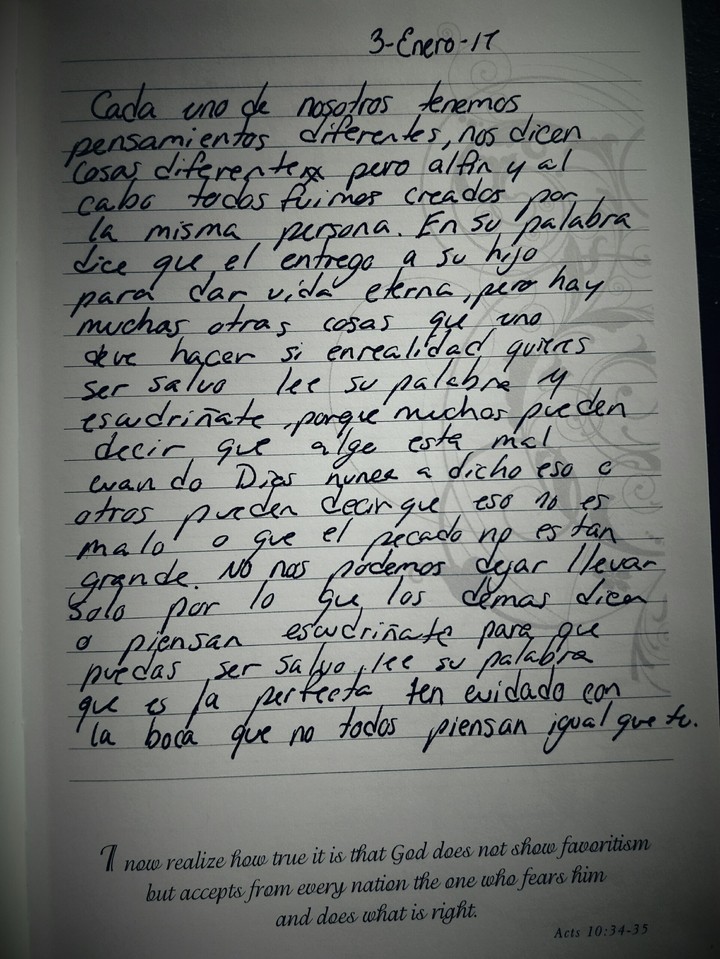 3-Enero-17
Cada uno de nosotros tenemos
pensamientos diferentes, nos dicen
cosas diferentes pero alfin y al
cabo todos fuimos creados por
la misma persona. En su palabra
dice que el entrego a su hijo
para dar vida eterna, pero hay
muchas otras cosas que uno
deve hacer si enrealidad quieres
ser salvo lee su palabra y
escudriñate, porque muchos pueden
decir que algo esta mal
cuando Dios nunca a dicho eso o
otros pueden decir que eso no es
malo o que el pecado no es tan
grande. No nos podemos dejar llevar
solo por lo que los demas dicen
o piensan escudriñate para que
puedas ser salvo, lee su palabra
que es la perfecta ten cuidado con
la boca que no todos piensan igual que tu.
I now realize how true it is that God does not show favoritism
but accepts from every nation the one who fears him
and does what is right.
Acts 10:34-35